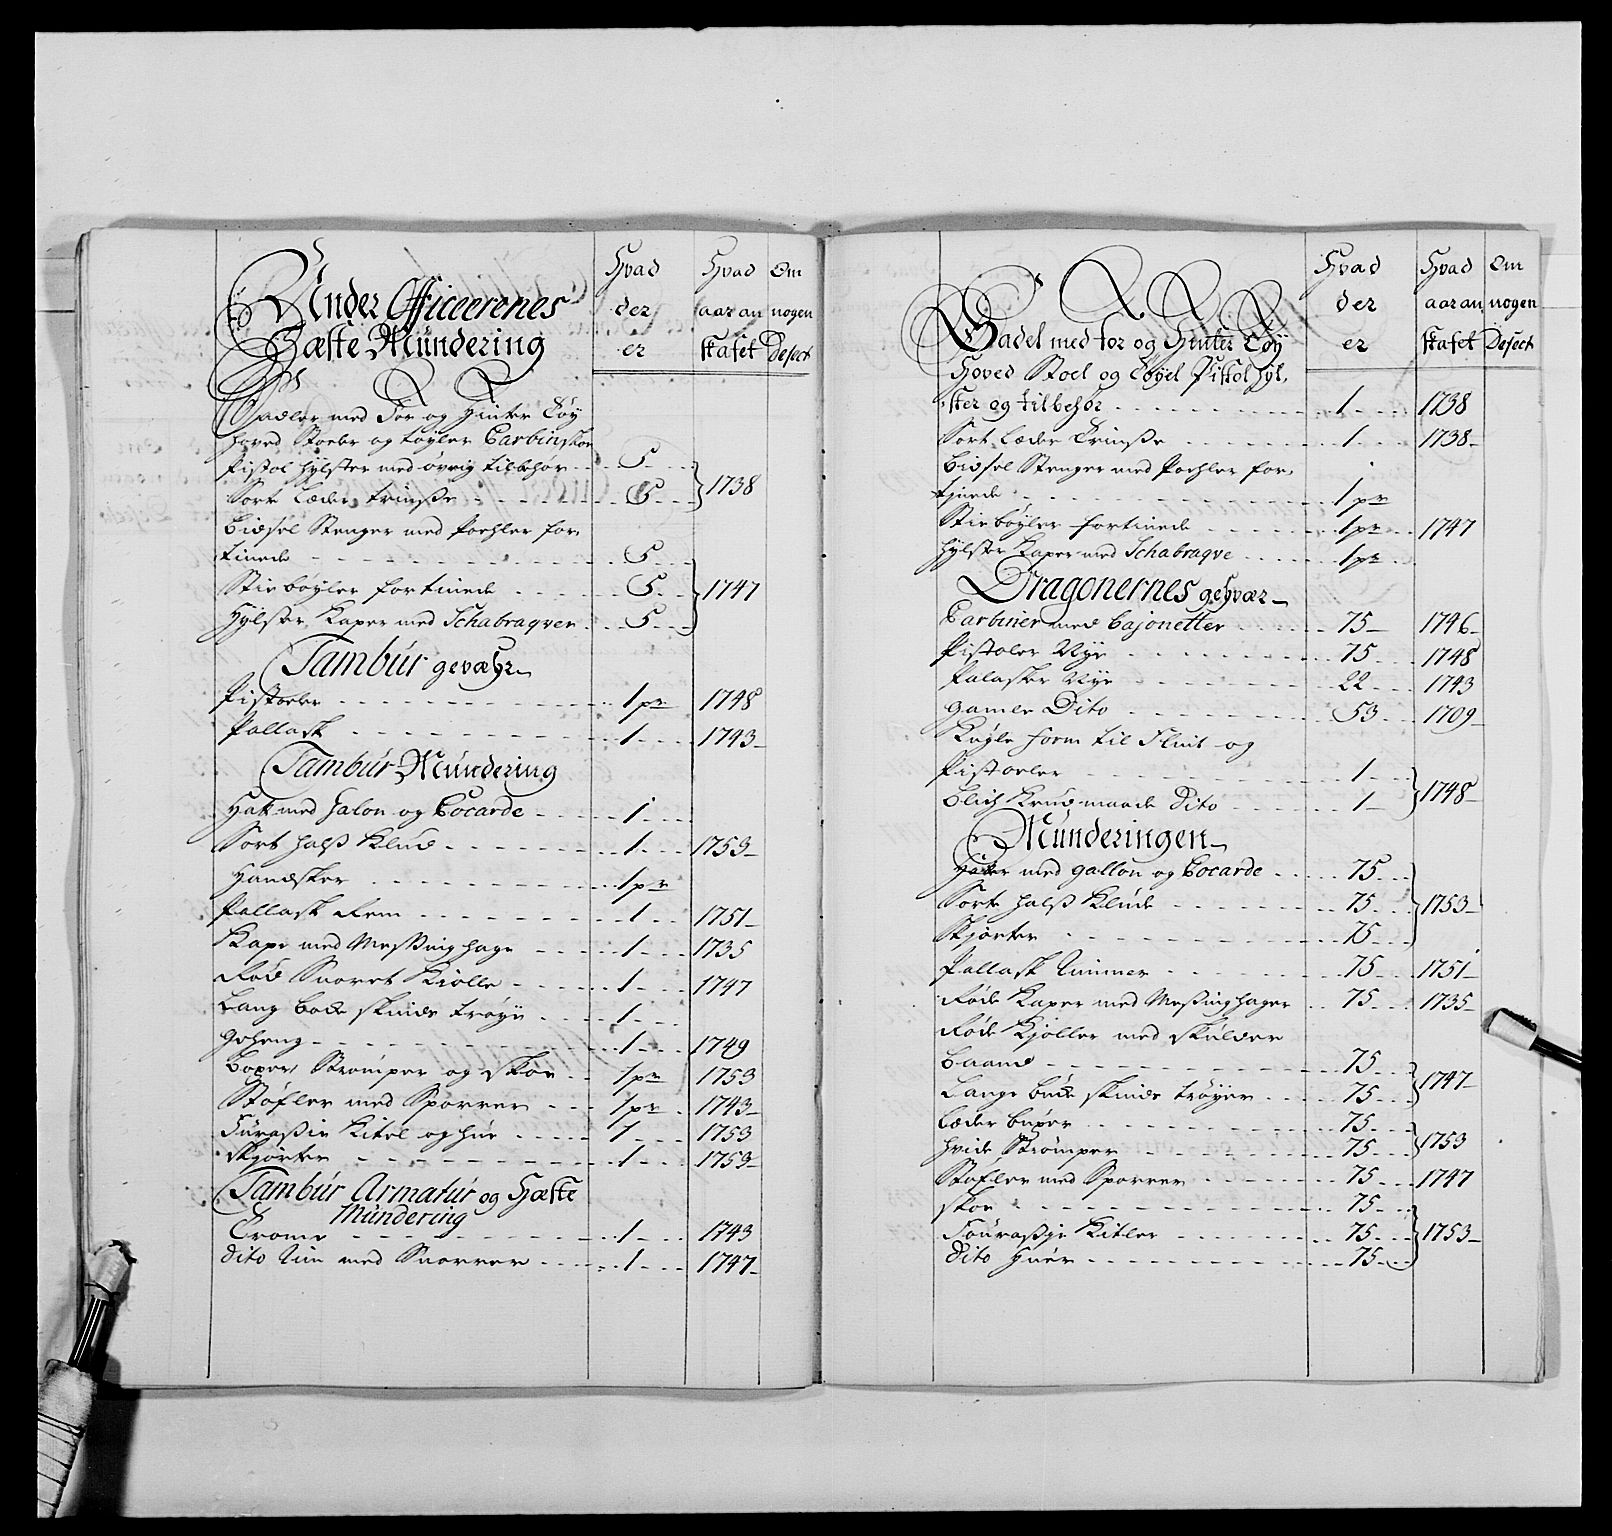 Under Officeerenes
Hæste Mundering
Hvad der er
Hvad aar an skafet
Om nogen Defect
Sadler med For og Hinter Töy
hoved Stoler og töyler Carbinskoe
Pistol Hylster med övrig tilbehör 5
Sort Læder trinsse 5 1738
Bidsel Stenger med Poehler for¬
tinede 5
Stie böyler fortinede 5 1747
Hylster Kaper med Schabraqver 5
Tambúr gevæhr
Pistoler 1 pr 1748
Pallask 1 1743
Tambúr Múndering
Hat med Galon og Cocarde 1
Sort Halss Klud 1 1753
Handsker 1 pr
Pallask Rem 1 1751
Kape med Messing hage 1 1735
Rød Snoret Kiolle 1 1747
Lang bucke skinds tröye 1
Geheng 1 1749
Boxer, Strömper og Skoe 1 pr 1753
Støfler med Sporrer 1 pr 1743
Furassie Kitel og hue 1 1753
Skjorter 1 1753
Tambúr Armatúr og Hæste
Múndering
Trome 1 1743
Dito Rim med Snorrer 1 1747
Hvad der er
Hvad aar an skafet
Om nogen Defect
Sadel med for og Hinter Töy
Hoved Stoel og Töyel Pistol Hyl¬
ster og tilbehör 1 1738
Sort Læder Trinsse 1 1738
Bidsel Stenger med Poehler for¬
tinede 1 pr
Stie böyler fortinede 1 pr 1747
Hylster Kaper med Schabraqve 1 pr
Dragonernes gehvær
Carbiner med Bajonetter 75 1746
Pistoler Nye 75 1748
Palasker Nye 22 1743
Gamle Dito 53 1709
Kugle form til Flint og
Pistoeler 1
Blich Krudmaade Dito 1 1748
Munderingen
Hatter med gallon og Cocarde 75
Sorte Halss Klude 75 1753
Skjorter 75
Pallask Rimmer 75 1751
Røde Kaper med Messing hager 75 1735
Røde Kjoller med Skulder
baand 75
Lange bucke skinds tröyer 75 1747
Læder buxer 75
Hvide Strömper 75 1753
Støfler med Sporrer 75 1747
Skoe 75
Fourassje Kitler 75 1753
Dito Huer 75